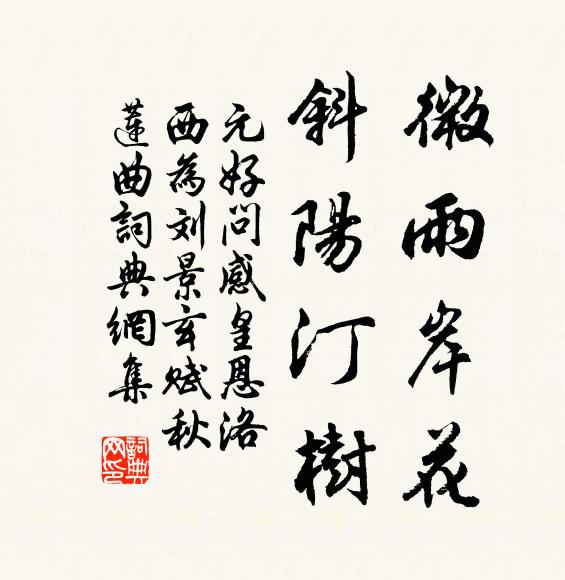 微雨岸花
斜陽汀樹
元好问感皇恩洛
西為刘景玄赋秋
蓮曲詞典網集
詞典
网印